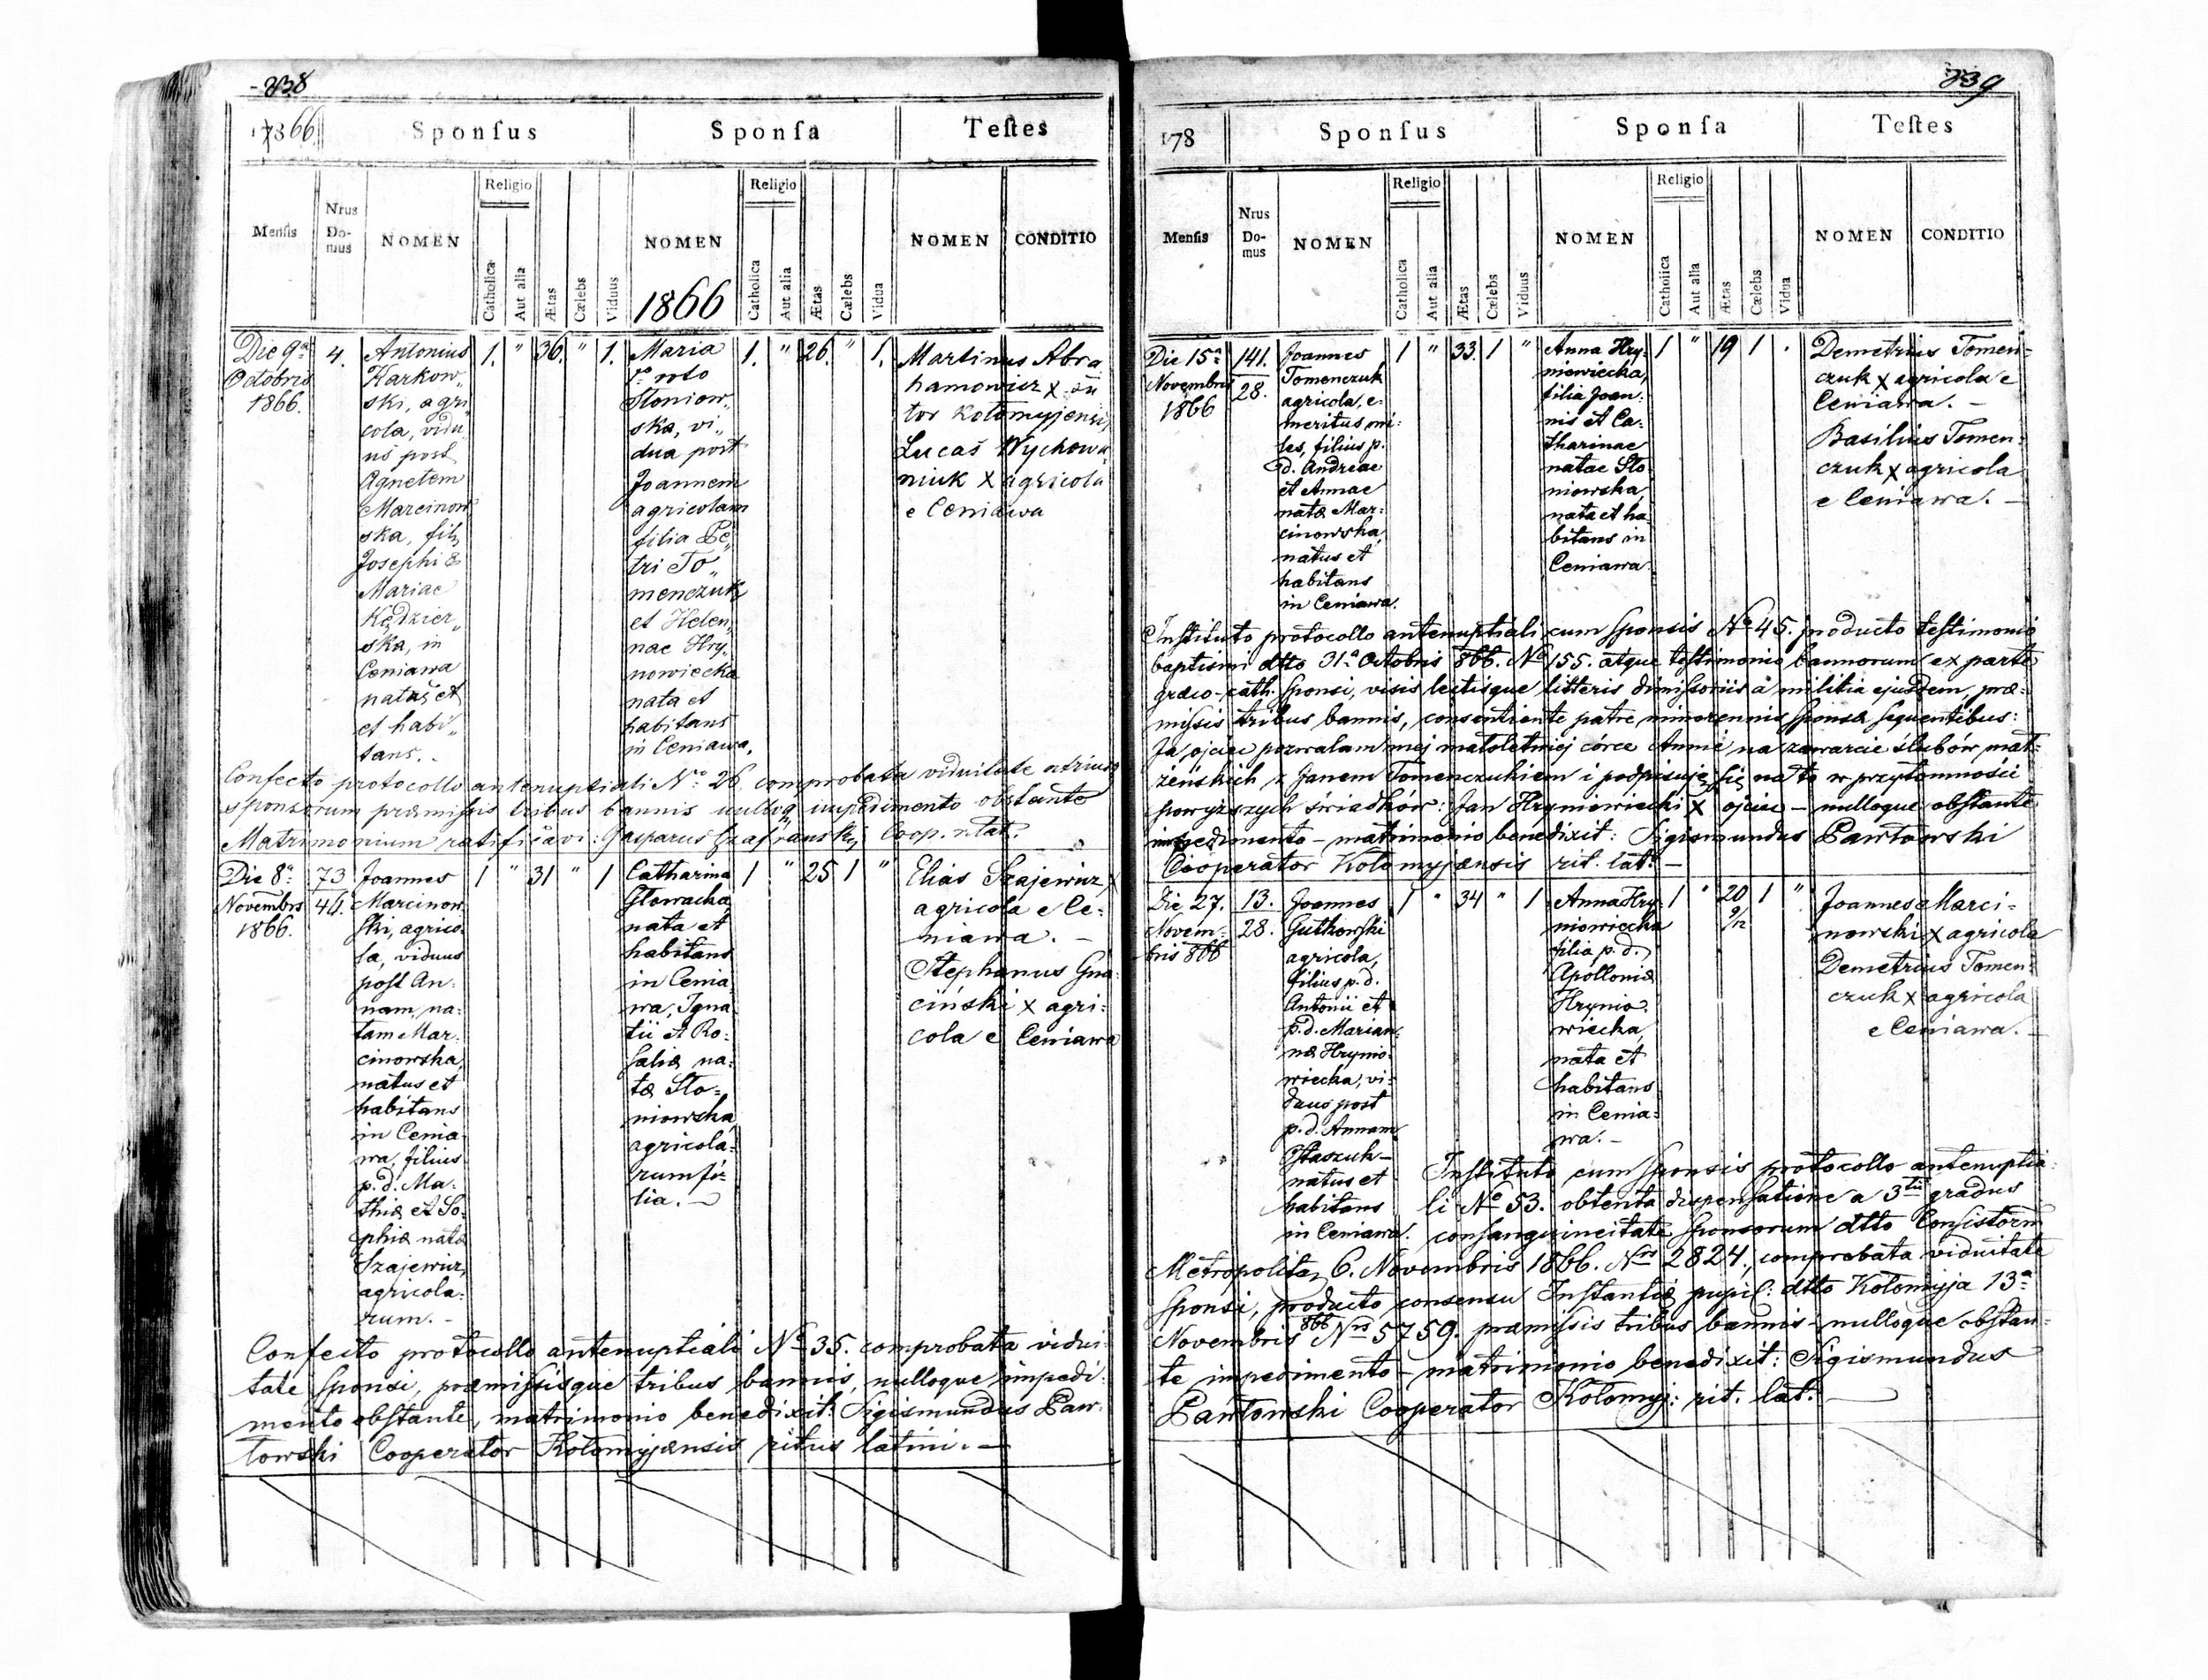 838
1866
Sponſus
Sponſa
Teſtes
Menſis
Nrus
Do-
mus
NOMEN
Religio
Catholica
Aut alia
Ætas
Cælebs
Viduus
NOMEN
1866
Religio
Catholica
Aut alia
Ætas
Cælebs
Vidua
NOMEN
CONDITIO
Die 9a
Octobris
1866.
4.
Antonius
Karkow„
ski, agri
cola, vidu
us post
Agnetem
Marcinow
ska, fil,
Josephi &
Mariae
Kędzier„
ska, in
Ceniawa
natus et
et habi„
tans.
1. " 36. " 1.
Maria
1o voto
Słoniow„
ska, vi„
dua post
Joannem
agricolam
filia Pe„
tri To„
menczuk
et Helen„
nae Hry„
nowiecka
nata et
habitans
in Ceniawa.
1. " 26. " 1.
Martinus Abra
hamowicz x
tor Kołomyjensis
Lucas Wychowa„
niuk x agricola
e Ceniawa
Confecto protocollo antenuptiali No 26 comprobata viduitate utriusq
sponsorum præmissis tribus bannis nulloq impedimento obstante
Matrimonium ratificavi: Gasparus Szafrański Coop. r. lat.
Die 8a
Novembris
1866.
73
44.
Joannes
Marcinow
ski, agrico
la, viduus
post An:
nam, na:
tam Mar:
cinowska,
natus et
habitans
in Cenia
wa, filius
p. d. Ma:
thiæ et So:
phiæ natæ
Szajewicz,
agricola:
rum. -
1 " 31 " 1
Catharina
Głowacka,
nata et
habitans
in Cenia:
wa, Igna:
tii et Ro:
saliæ na:
tæ Sło:
niowska,
agricola:
rum fi:
lia. —
1 " 25 1 "
Elias Szajewicz x
agricola e Ce:
niawa. —
Stephanus Gna:
ciński x agri:
cola e Ceniawa
Confecto protocollo antenuptiali No 35. comprobata vidui:
tate sponsi, præmissisque tribus bannis, nulloque impedi:
mento obstante, matrimonio benedixit: Sigismundus Paw:
łowski Cooperator Kołomyjænsis ritus latini. —
839
178
Sponſus
Sponſa
Teſtes
Menſis
Nrus
Do-
mus
NOMEN
Religio
Catholica
Aut alia
Ætas
Cælebs
Viduus
NOMEN
Religio
Catholica
Aut alia
Ætas
Cælebs
Vidua
NOMEN
CONDITIO
Die 15a
Novembris
1866
141.
28.
Joannes
Tomenczuk
agricola, e:
meritus mi:
les, filius p.
d. Andreae
et Annae
natæ Mar:
cinowska,
natus et
habitans
in Ceniawa.
1 " 33. 1 "
Anna Hry:
niewiecka,
filia Joan:
nis et Ca:
tharinae
natae Sło
niowska,
nata et ha:
bitans in
Ceniawa.
1 " 19 1 .
Demetrius Tomen:
czuk x agricola e
Ceniawa. —
Basilius Tomen:
czuk x agricola
e Ceniawa. —
Instituto protocollo antenuptiali cum sponsis No 45. producto testimonio
baptismi dtto 31a Octobris 866. No 155. atque testimonio bannorum ex parte
græco-cath. sponsi, visis lectisque litteris dimissoriis a militia ejusdem, præ:
missis tribus bannis, consentiente patre minorennis sponsæ sequentibus:
Ja ojciec pozwalam mej małoletniej córce Annie na zawarcie ślubów mał:
żeńskich z Janem Tomenczukiem i podpisuję się na to w przytomności
powyższych świadków: Jan Hryniewiecki x ojciec — nulloque obstante
impedimento — matrimonio benedixit: Sigismundus Pawłowski
Cooperator Kołomyjænsis rit. lat. —
Die 27.
Novem:
bris 866
13.
28.
Joannes
Gutkowski
agricola,
filius p. d.
Antonii et
p. d. Marian:
næ Hrynio:
wiecka, vi:
duus post
p. d. Annam
Ostaszuk —
natus et
habitans
in Ceniawa.
1 " 34 " 1
Anna Hry:
niowiecka
filia p. d.
Apolloniæ
Hrynio:
wiecka,
nata et
habitans
in Cenia:
wa. —
1 " 20 9/12 1 "
Joannes Marci:
nowski x agricola
Demetrius Tomen:
czuk x agricola
e Ceniawa. —
Instituto cum sponsis protocollo antenuptia:
li No 53. obtenta dispensatione a 3tii gradus
consanguineitate sponsorum dtto Consistorii
Metropolitan 6. Novembris 1866. Nrs 2824, comprobata viduitate
sponsi, producto consensu Instantiæ pupil: dtto Kołomyja 13a
Novembris 866 Nrs 5759. præmissis tribus bannis — nulloque obstan:
te impedimento — matrimonio benedixit: Sigismundus
Pawłowski Cooperator Kołomyj: rit. lat. —